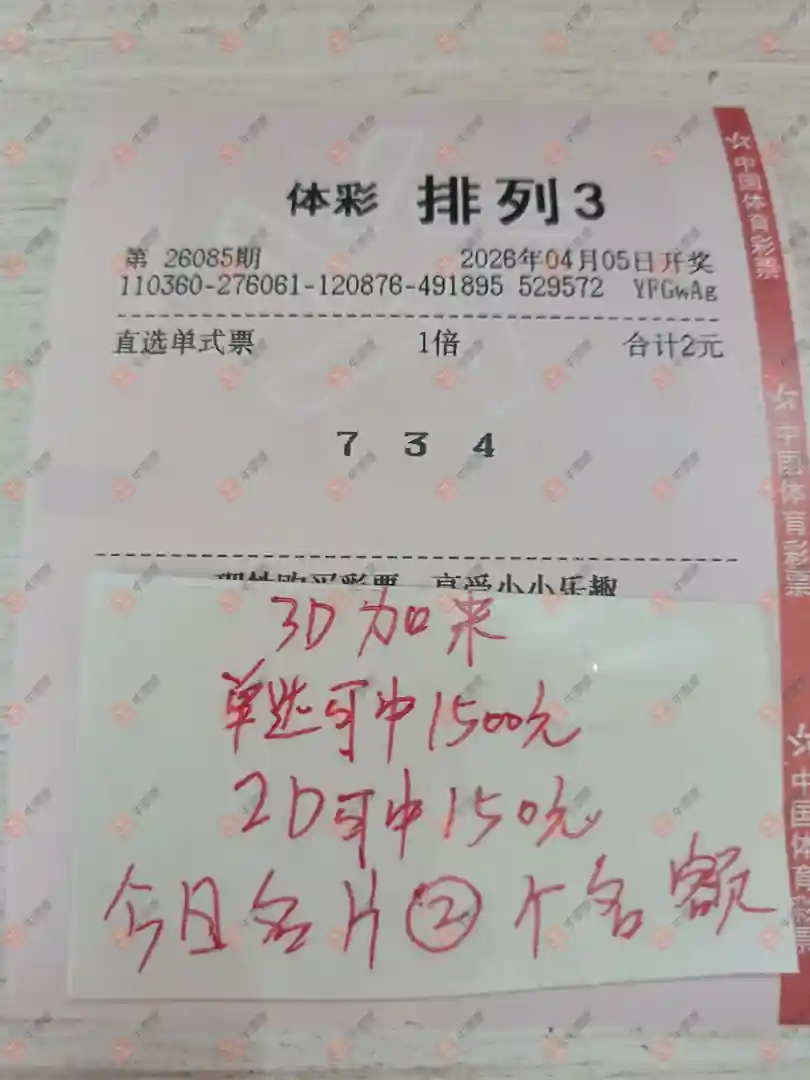 体彩 排列3
第 26085期 2026年04月05日开奖
110360-276061-120876-491895 529572 YFGwAg
直选单式票 1倍 合计2元
7 3 4
理性购买彩票 享受小小乐趣
3D加米
单选可中1500元
2D可中150元
今日名片②个名额
中国体育彩票
中国体育彩票
中国体育彩票